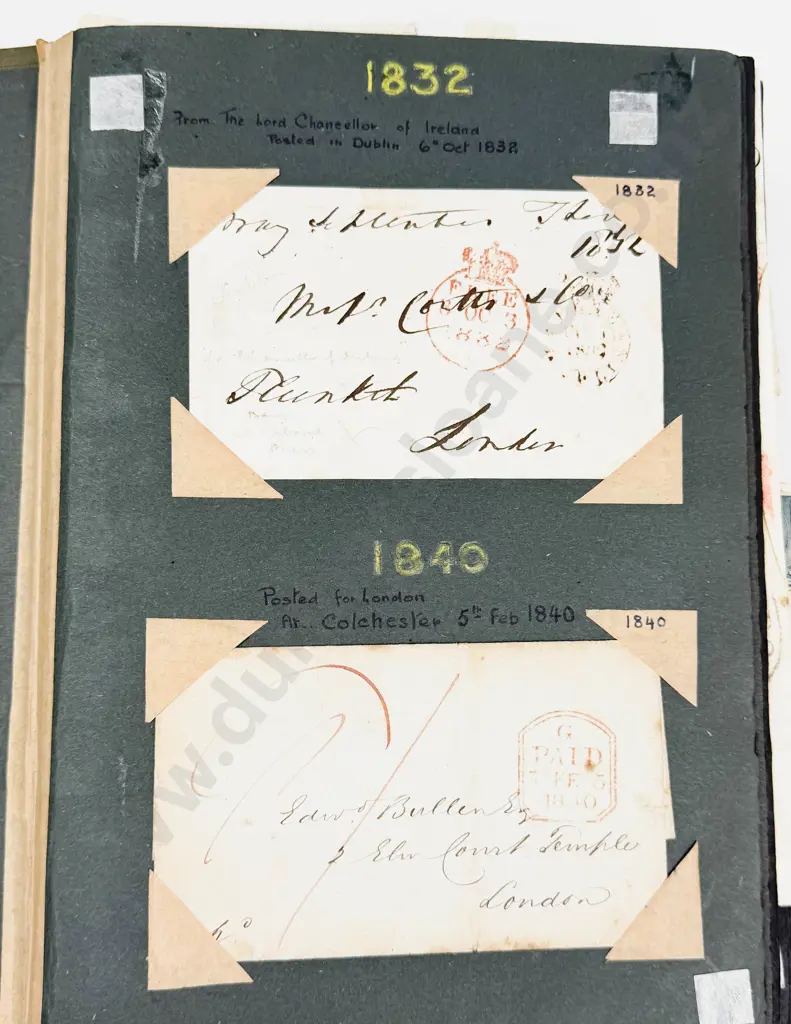 1832
From The Lord Chancellor of Ireland
Posted in Dublin 6th Oct 1832
1832
Bray September
1832
FREE
OC 3
1832
Messrs Coutts & Co
Plunket
London
1840
Posted for London
At.. Colchester 5th Feb 1840
1840
G
PAID
FE 5
1840
Edwd Bullen Esq
2 Elm Court Temple
London
Pd